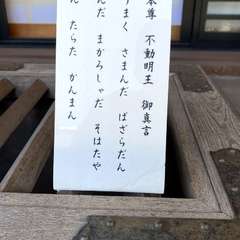 本尊 不動明王 御真言
うまく さまんだ ばざらだん
んだ まかろしゃだ そはたや
ん たらた かんまん